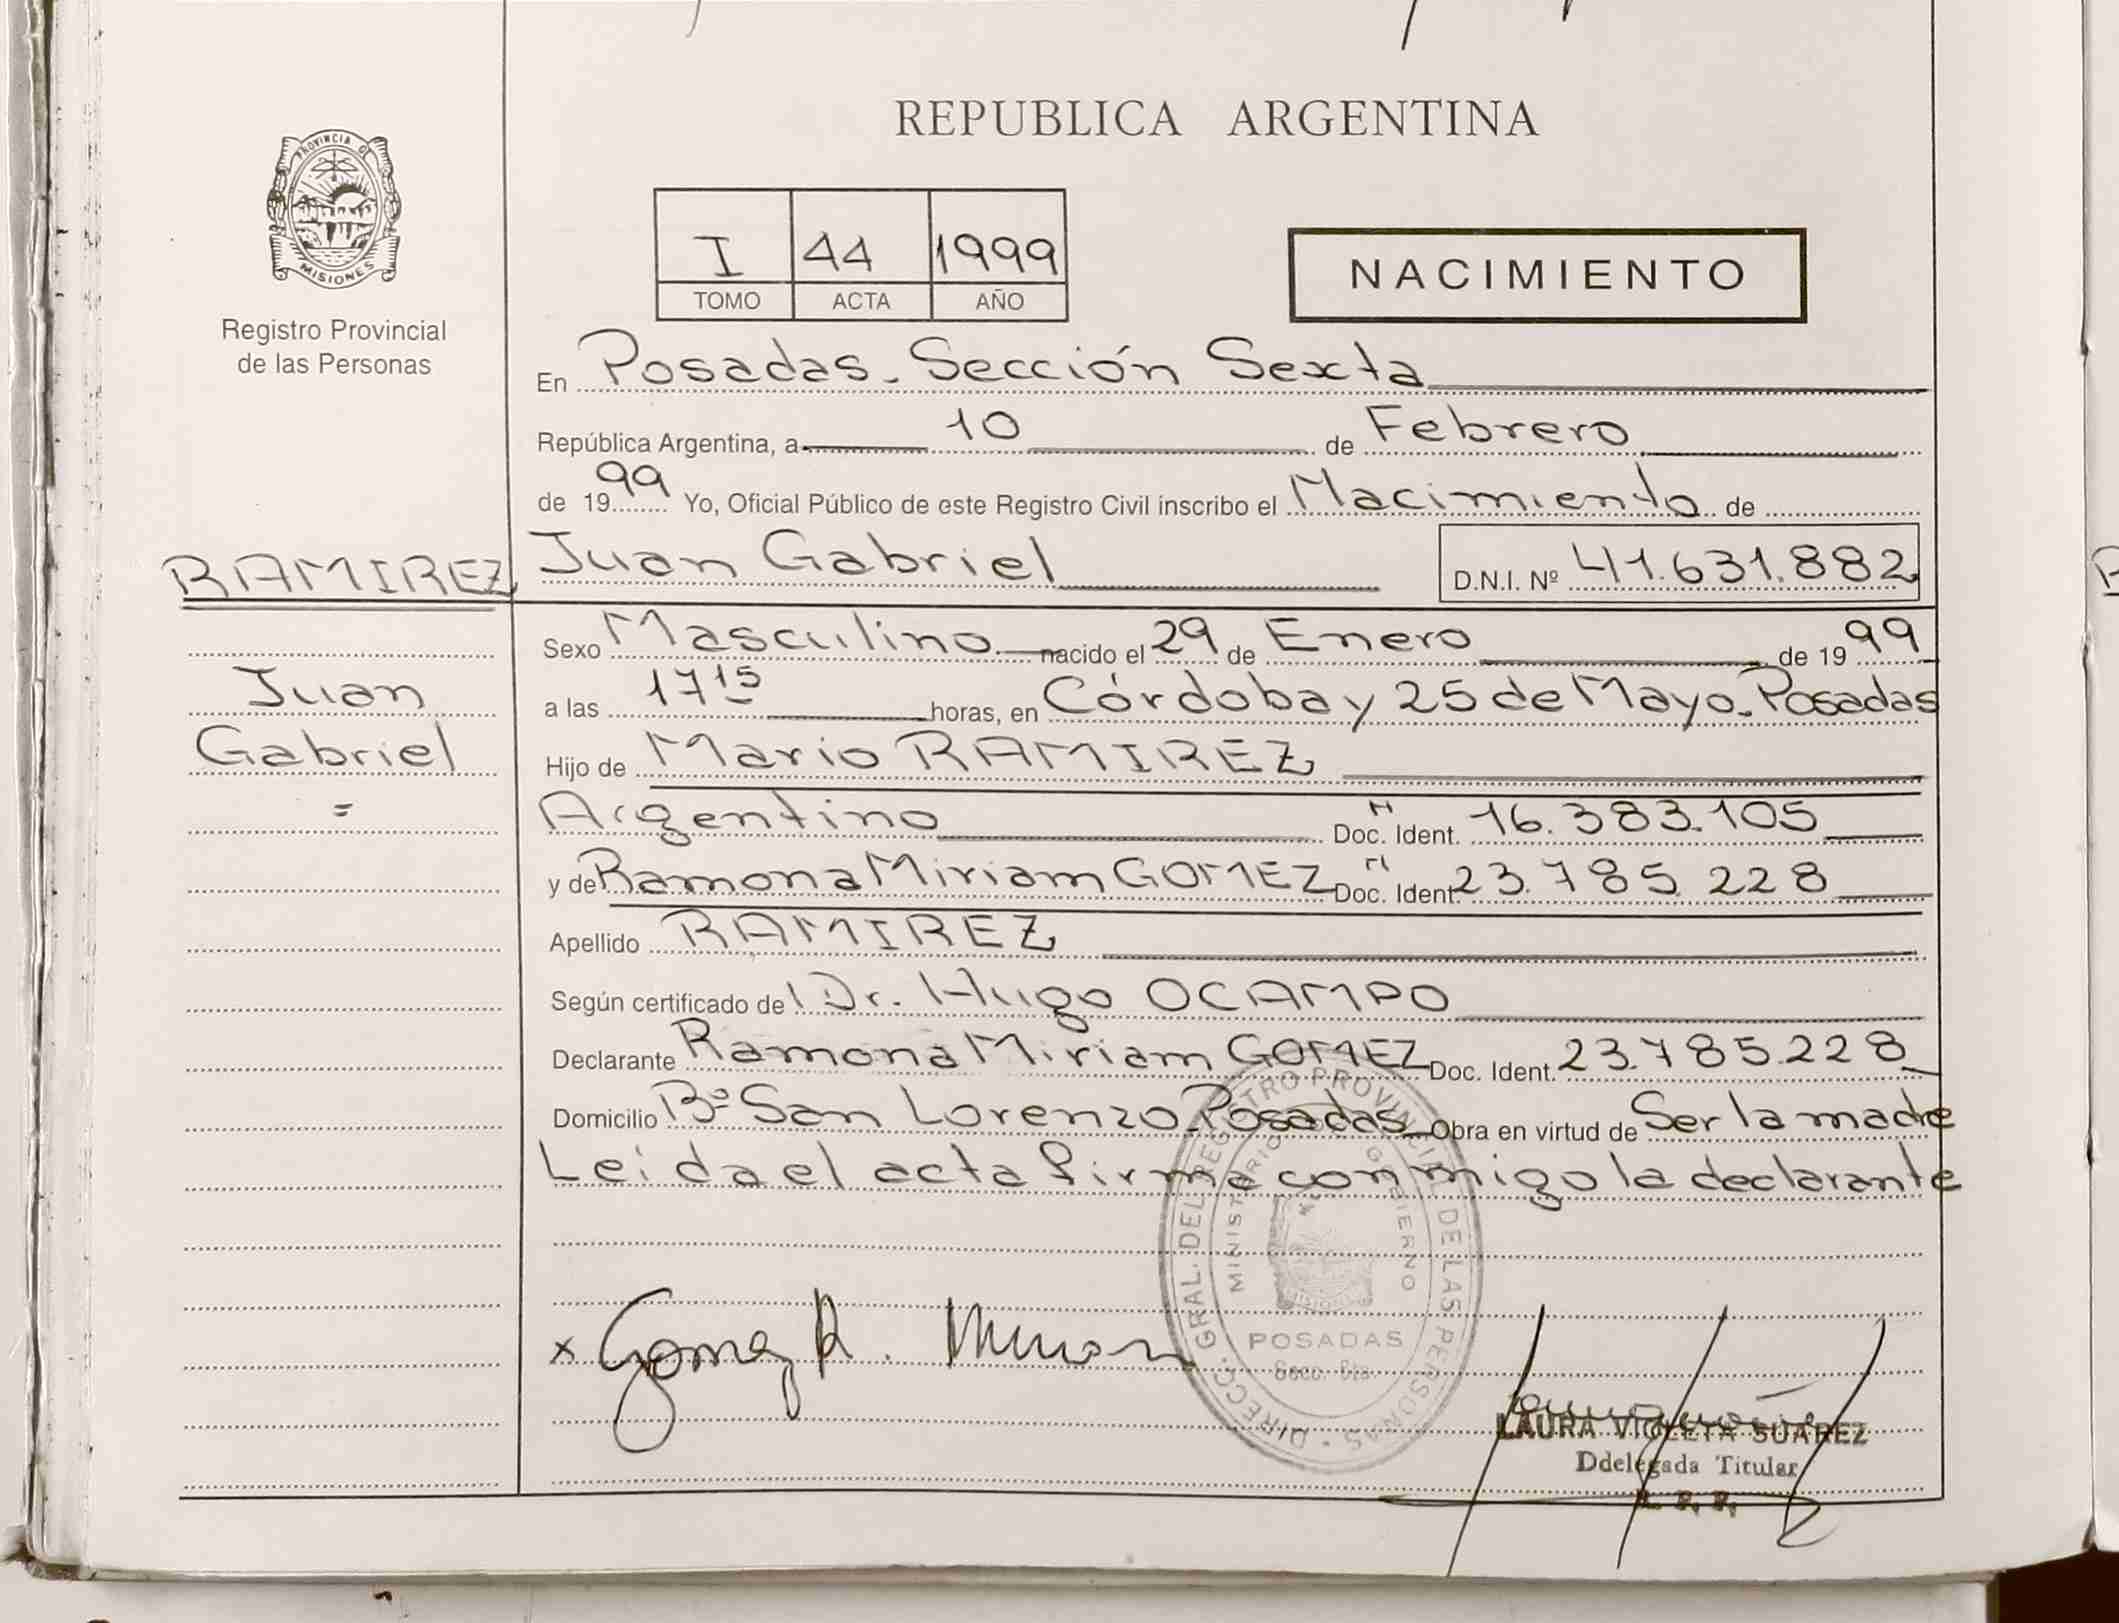 REPUBLICA ARGENTINA
PROVINCIA DE
MISIONES
Registro Provincial
de las Personas
I 44 1999
TOMO ACTA AÑO
NACIMIENTO
En Posadas. Sección Sexta
República Argentina, a 10 de Febrero
de 1999 Yo, Oficial Público de este Registro Civil inscribo el Nacimiento de
RAMIREZ Juan Gabriel D.N.I. Nº 41.631.882
Sexo Masculino nacido el 29 de Enero de 1999
Juan
Gabriel
=
a las 17 15 horas, en Córdoba y 25 de Mayo. Posadas
Hijo de Mario RAMIREZ
Argentino Doc. Ident. 16.383.105
y de Ramona Miriam GOMEZ Doc. Ident. 23.785.228
Apellido RAMIREZ
Según certificado de Dr. Hugo OCAMPO
Declarante Ramona Miriam GOMEZ Doc. Ident. 23.785.228
Domicilio Bº San Lorenzo. Posadas Obra en virtud de Ser la madre
Leida el acta firma conmigo la declarante
DIRECC. GRAL. DEL REGISTRO PROVINCIAL DE LAS PERSONAS
MINISTERIO DE GOBIERNO
MISIONES
POSADAS
Secc. 6ta.
x Gomez R. Miriam
LAURA VIOLETA SUAREZ
Ddelegada Titular